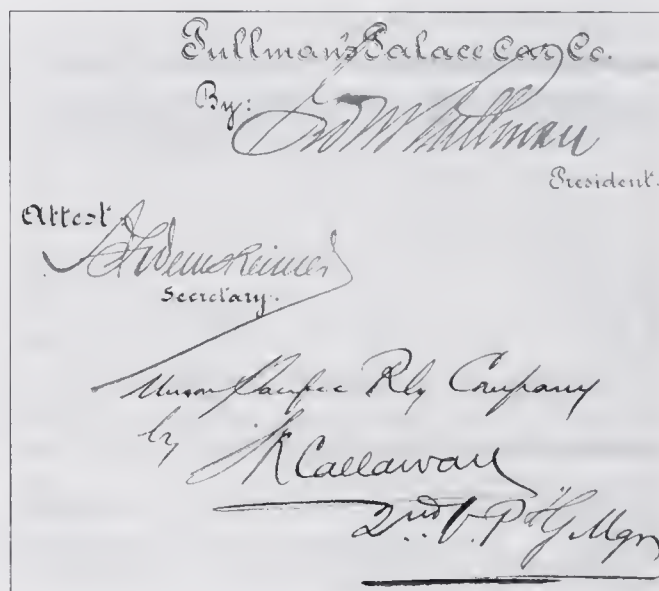 Pullman's Palace Car Co.
By:
Geo M Pullman
President.
Attest
A. S. Weinsheimer
Secretary.
Union Pacific Rly Company
by
S R Callaway
2nd V. P & G Mgr